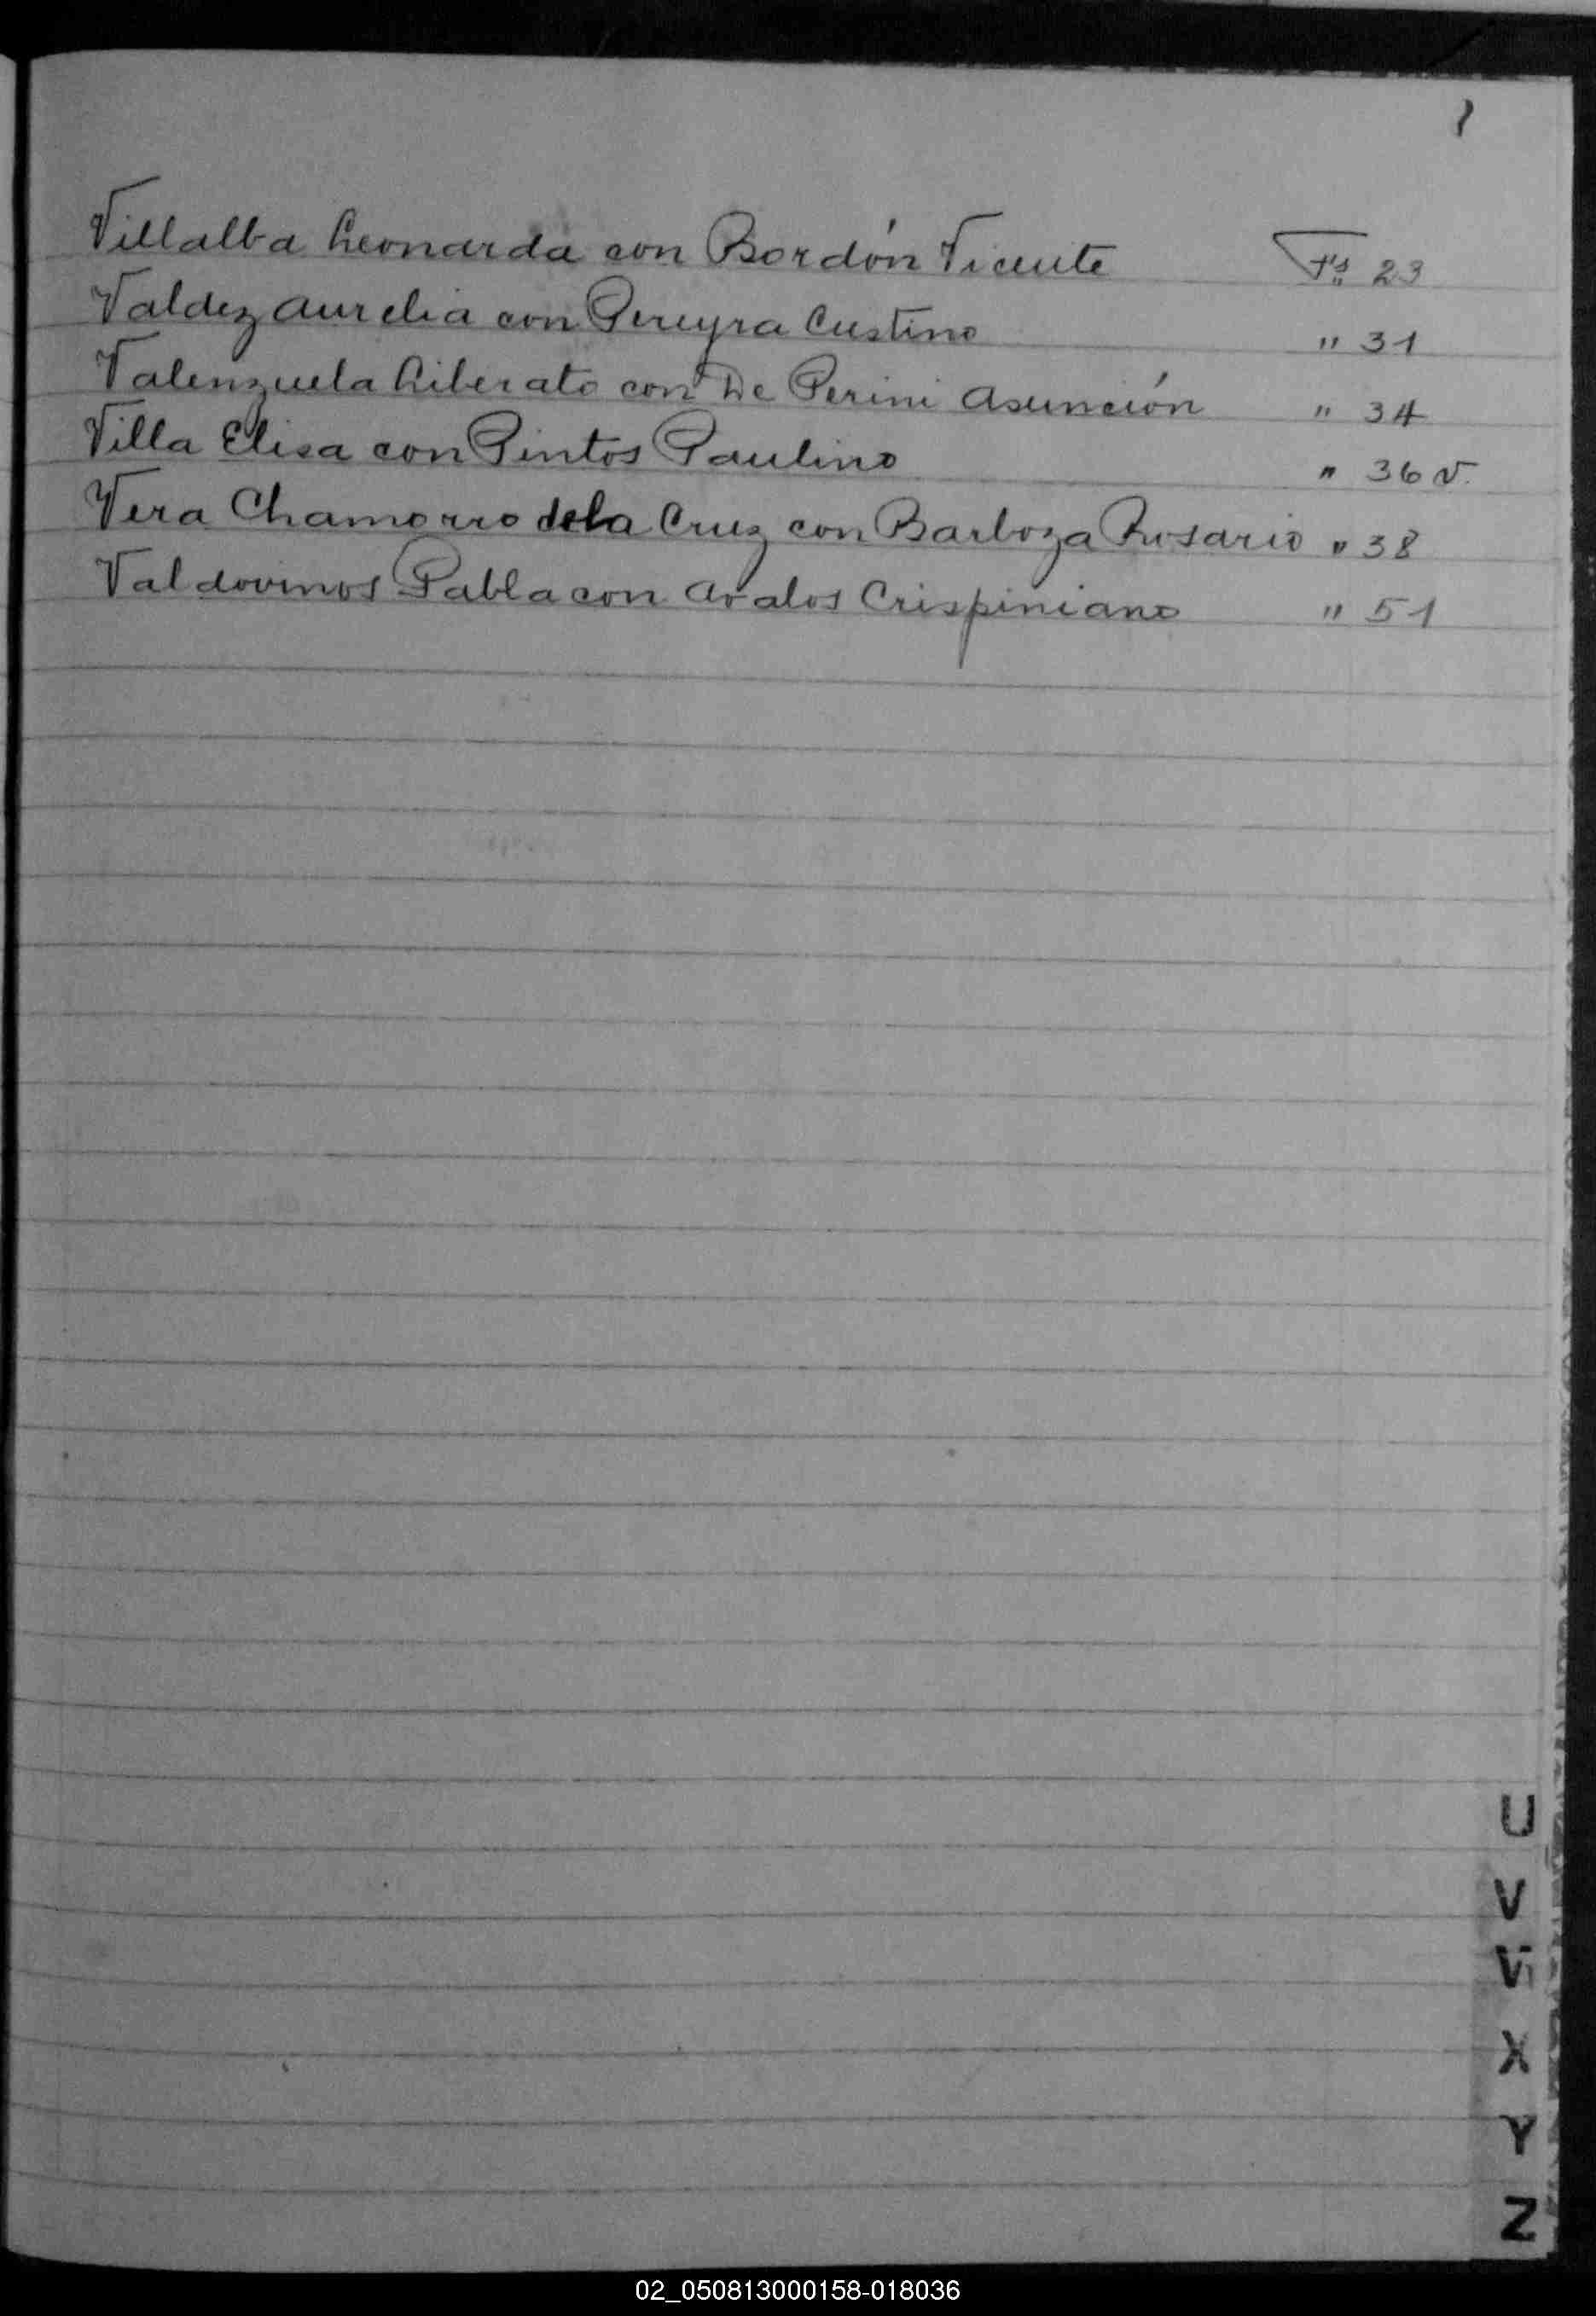 Villalba Leonarda con Bordón Vicente Fs 23
Valdez Aurelia con Pereyra Custino " 31
Valenzuela Liberato con De Perini Asunción " 34
Villa Elisa con Pintos Paulino " 36 v.
Vera Chamorro dela Cruz con Barboza Rosario " 38
Valdovinos Pabla con Avalos Crispiniano " 51
U
V
Vi
X
Y
Z
02_050813000158-018036